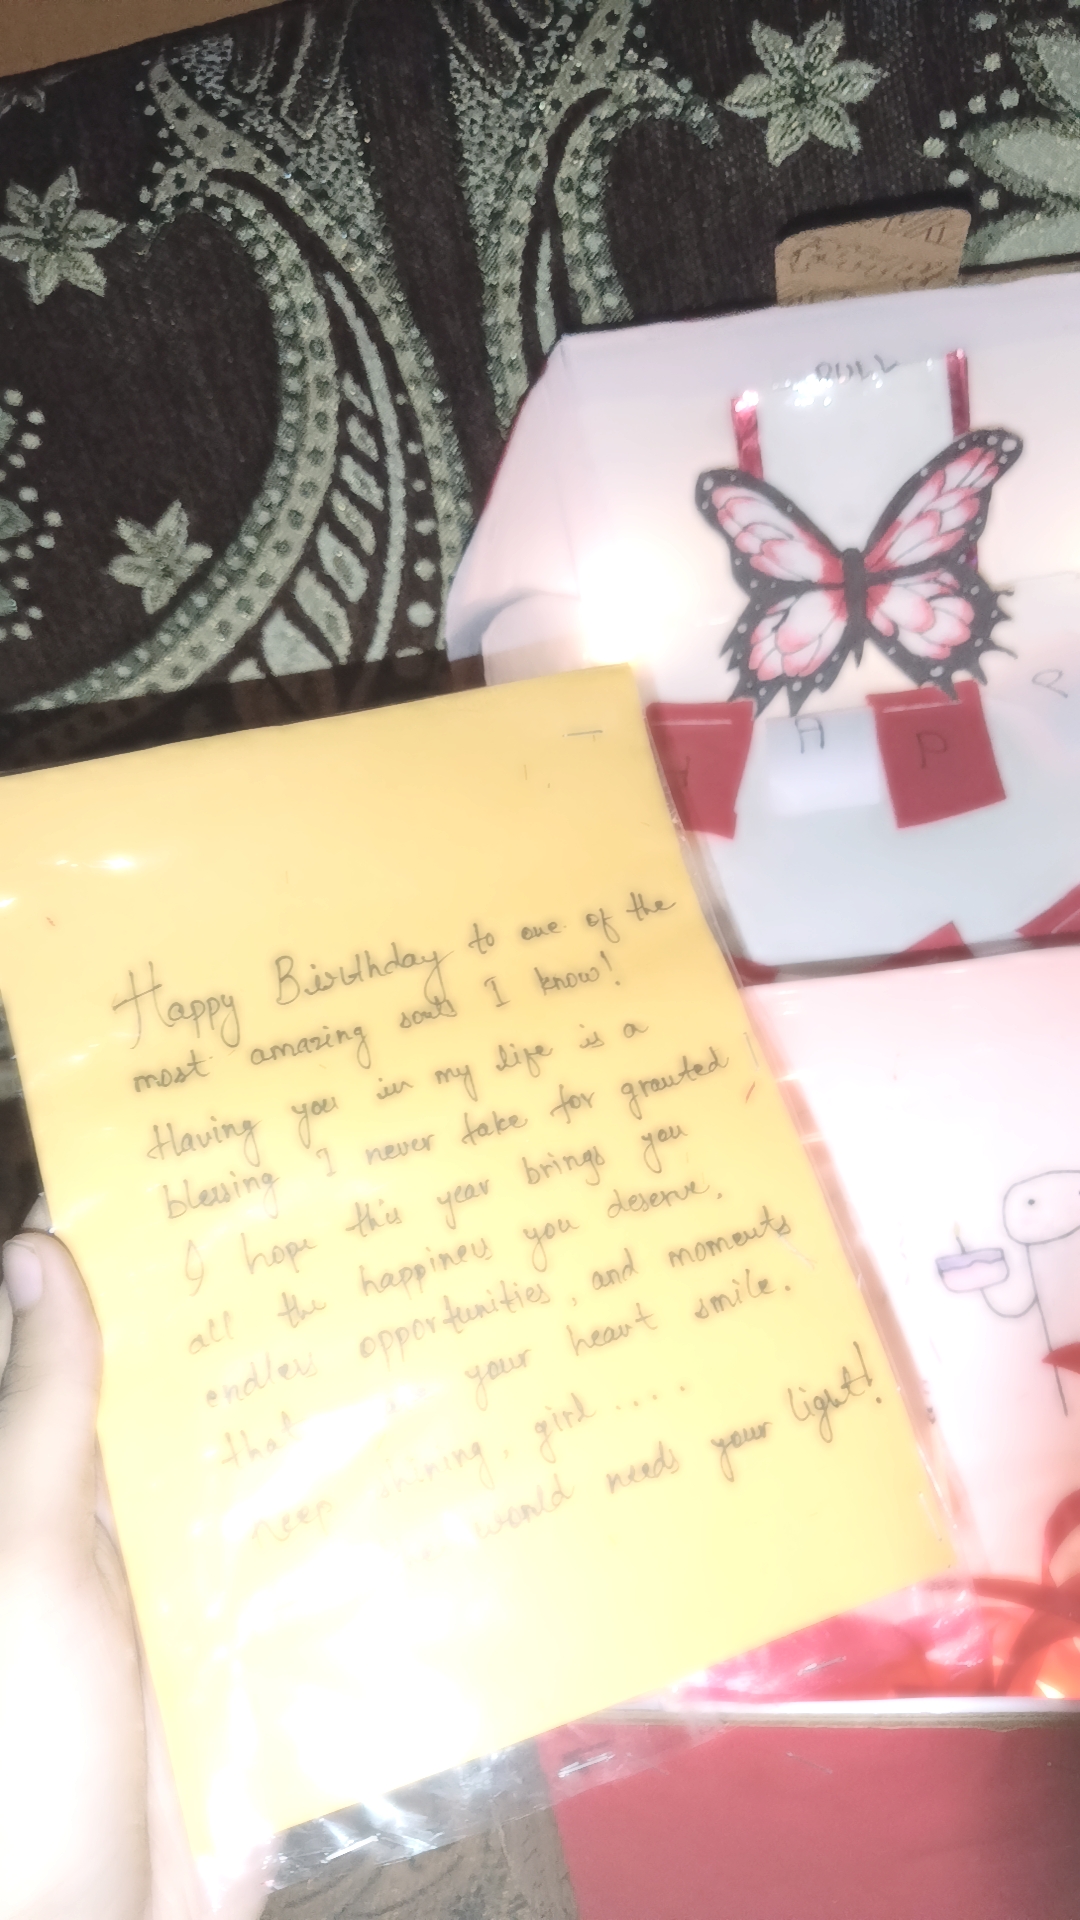 PULL
H A P P
Happy Birthday to one of the
most amazing souls I know!
Having you in my life is a
blessing I never take for granted
I hope this year brings you
all the happiness you deserve,
endless opportunities, and moments
that your heart smile.
Keep shining, girl ....
world needs your light!